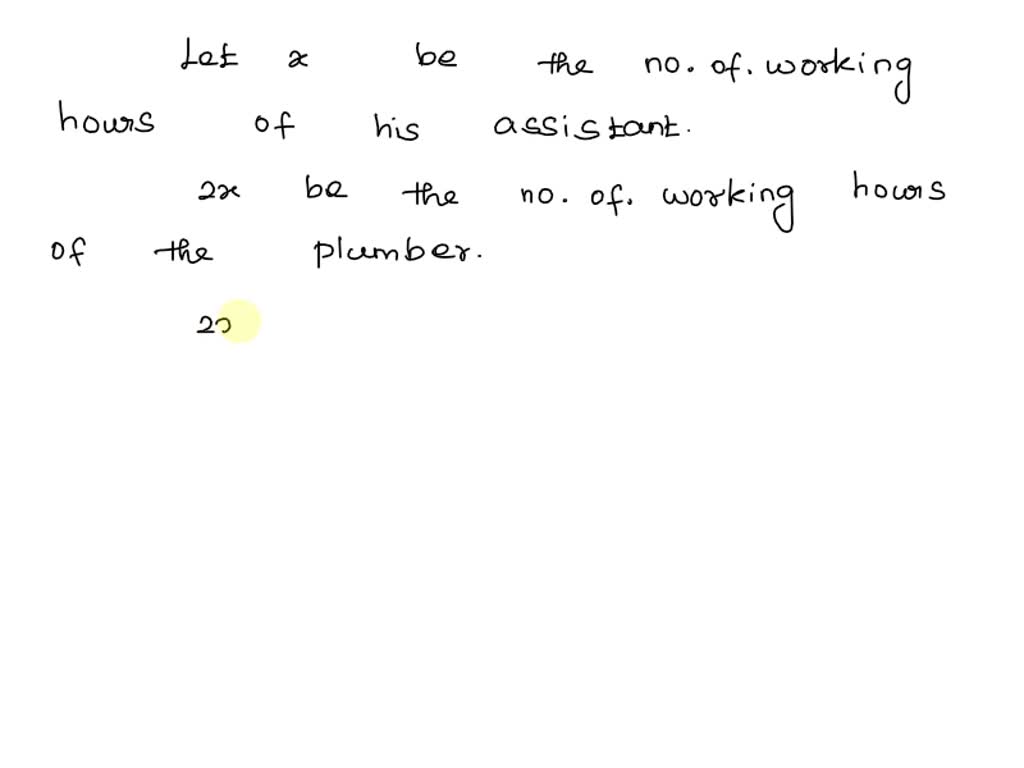 Let x be the no. of. working
hours of his assistant.
2x be the no. of. working hours
of the plumber.